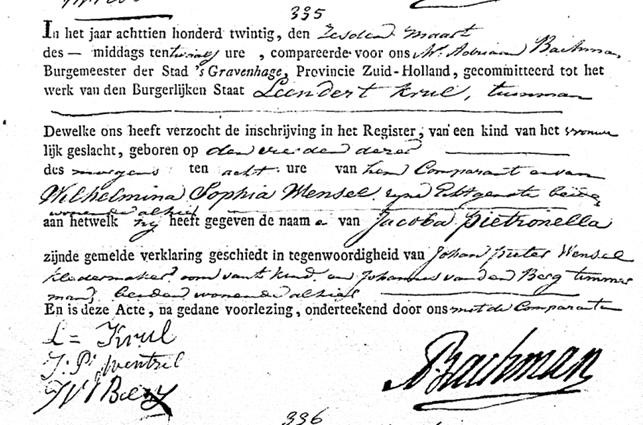 335
In het jaar achttien honderd twintig, den Zesden maart
des — middags ten twaalf ure, compareerde voor ons Mr. Adriaan Bachman,
Burgemeester der Stad 's Gravenhage, Provincie Zuid-Holland, gecommitteerd tot het
werk van den Burgerlijken Staat Leendert Krul, tuinman
Dewelke ons heeft verzocht de inschrijving in het Register, van een kind van het vrouwe
lijk geslacht, geboren op den vierden dezer
des morgens ten acht ure van hem Comparant en van
Wilhelmina Sophia Wensel, zijne Echtgenote beide
wonende alhier
aan hetwelk hij heeft gegeven de naame van Jacoba Pietronella
zijnde gemelde verklaring geschiedt in tegenwoordigheid van Johan Pieter Wensel
kledermaker oom van 't kind en Johannes van den Berg timmer
man, beiden wonende alhier
En is deze Acte, na gedane voorlezing, onderteekend door ons met de Comparanten
L = Krul
J: P: Wentzel
Bachman
336